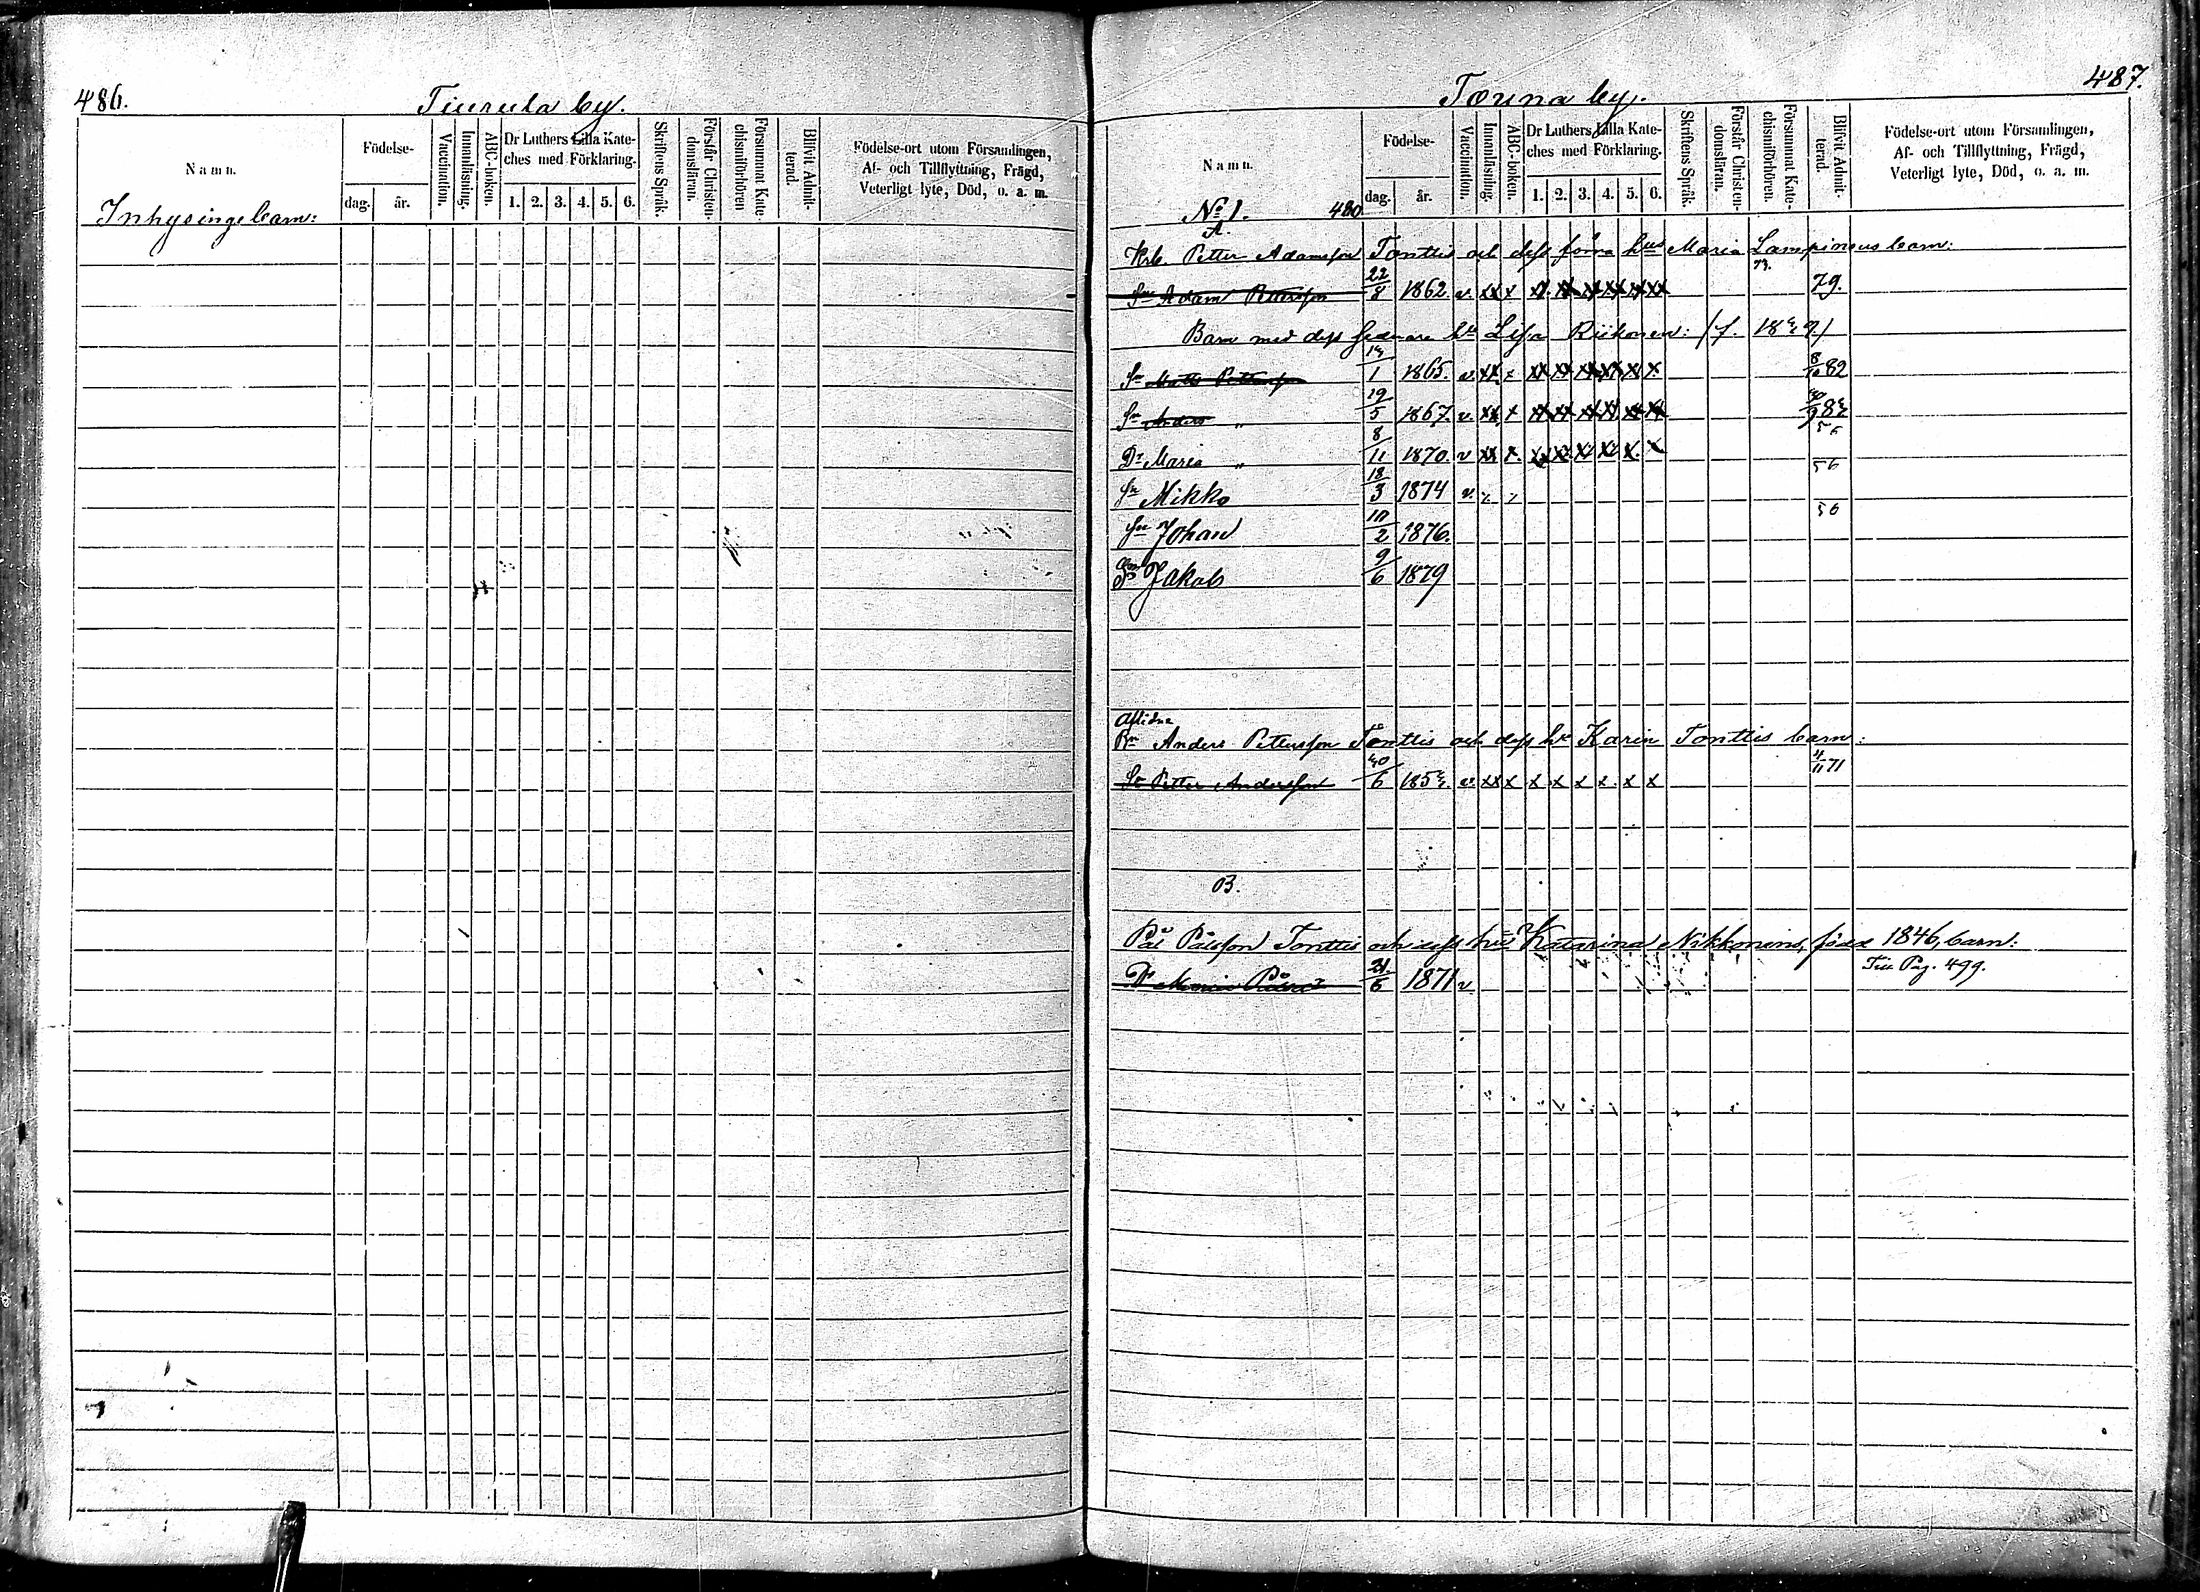 486.
Tiurula by.
Namn.
Födelse-
dag.
år.
Vaccination.
Innanläsning.
ABC-boken.
Dr Luthers Lilla Kate-
ches med Förklaring.
1. 2. 3. 4. 5. 6.
Skriftens Språk.
Förstår Christen-
domsläran.
Försummat Kate-
chismiförhören
Blifvit Admit-
terad.
Födelse-ort utom Församlingen,
Af- och Tillflyttning, Frägd,
Veterligt lyte, Död, o. a. m.
Inhysinge barn:
487.
Touna by.
Namn.
Födelse-
dag.
år.
Vaccination.
Innanläsning.
ABC-boken.
Dr Luthers Lilla Kate-
ches med Förklaring.
1. 2. 3. 4. 5. 6.
Skriftens Språk.
Förstår Christen-
domsläran.
Försummat Kate-
chismiförhören.
Blifvit Admit-
terad.
Födelse-ort utom Församlingen,
Af- och Tillflyttning, Frägd,
Veterligt lyte, Död, o. a. m.
No 1. 480
A.
Petter Adamsson Tonttis och dess förra hus Maria Lampinens barn:
Sn Adam Pettersson 22/8 1862. v. xx x 79.
Barn med dess hu Lisa Riikonen:
Sn Matts Pettersson 1 1865. v. xx x 8/10 82
Sn Anders " 19/5 1867. v. xx x
Dr Maria " 8/11 1870. v xx x. 56
Sn Mikko 18/3 1874 v. 56
Sn Johan 10/2 1876.
Sn Jakob 9/6 1879
Aflidne
Anders Pettersson Tonttis och dess hu Karin Tonttis barn:
Sn Petter Andersson 6 v. xx x x x x x. x x 4/11 71
B.
Pål Pålsson Tonttis och dess hus Katarina Nikkonens, född 1846, barn:
Dr Maria 21/6 1871 v Pag. 499.